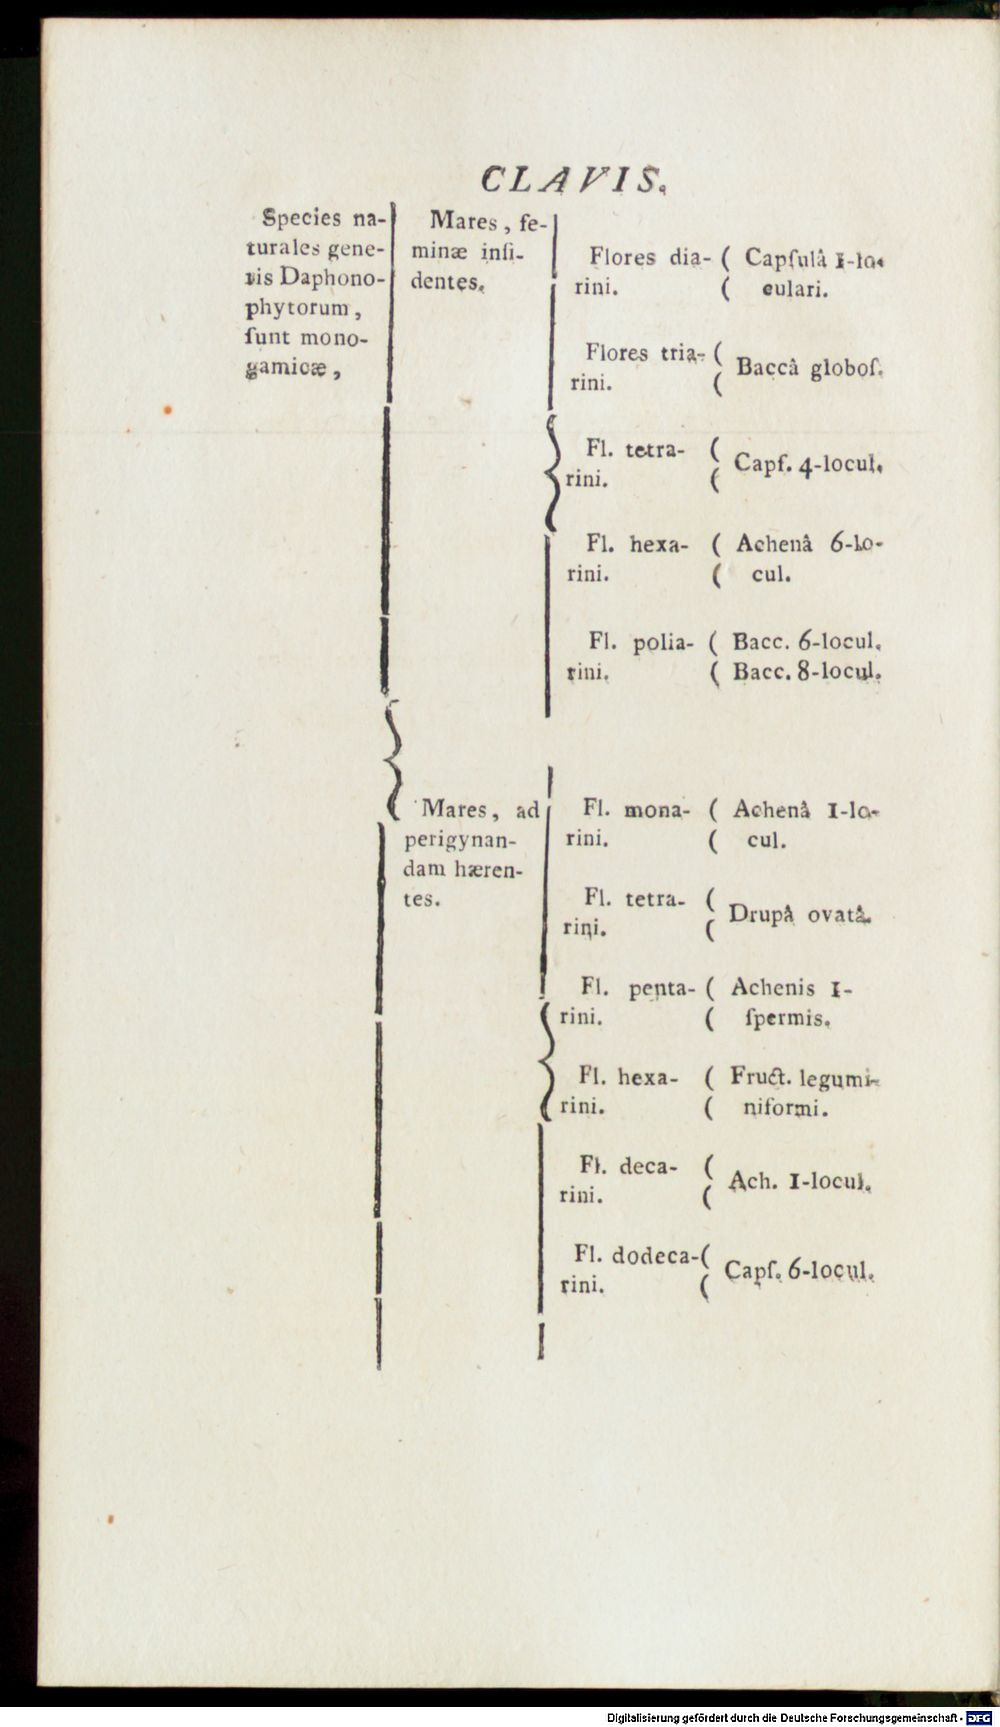 CLAVIS.
Species na-
turales gene-
ris Daphono-
phytorum,
ſunt mono-
gamicæ,
Mares, fe-
minæ inſi-
dentes.
Flores dia- ( Capſulâ 1-lo-
rini. ( culari.
Flores tria- (
rini. ( Baccâ globoſ.
Fl. tetra- (
rini. ( Capſ. 4-locul.
Fl. hexa- ( Achenâ 6-lo-
rini. ( cul.
Fl. polia- ( Bacc. 6-locul.
rini. ( Bacc. 8-locul.
Mares, ad
perigynan-
dam hæren-
tes.
Fl. mona- ( Achenâ 1-lo-
rini. ( cul.
Fl. tetra- (
rini. ( Drupâ ovatâ.
Fl. penta- ( Achenis 1-
rini. ( ſpermis.
Fl. hexa- ( Fruct. legumi-
rini. ( niformi.
Fl. deca- (
rini. ( Ach. 1-locul.
Fl. dodeca- (
rini. ( Capſ. 6-locul.
Digitalisierung gefördert durch die Deutsche Forschungsgemeinschaft - DFG